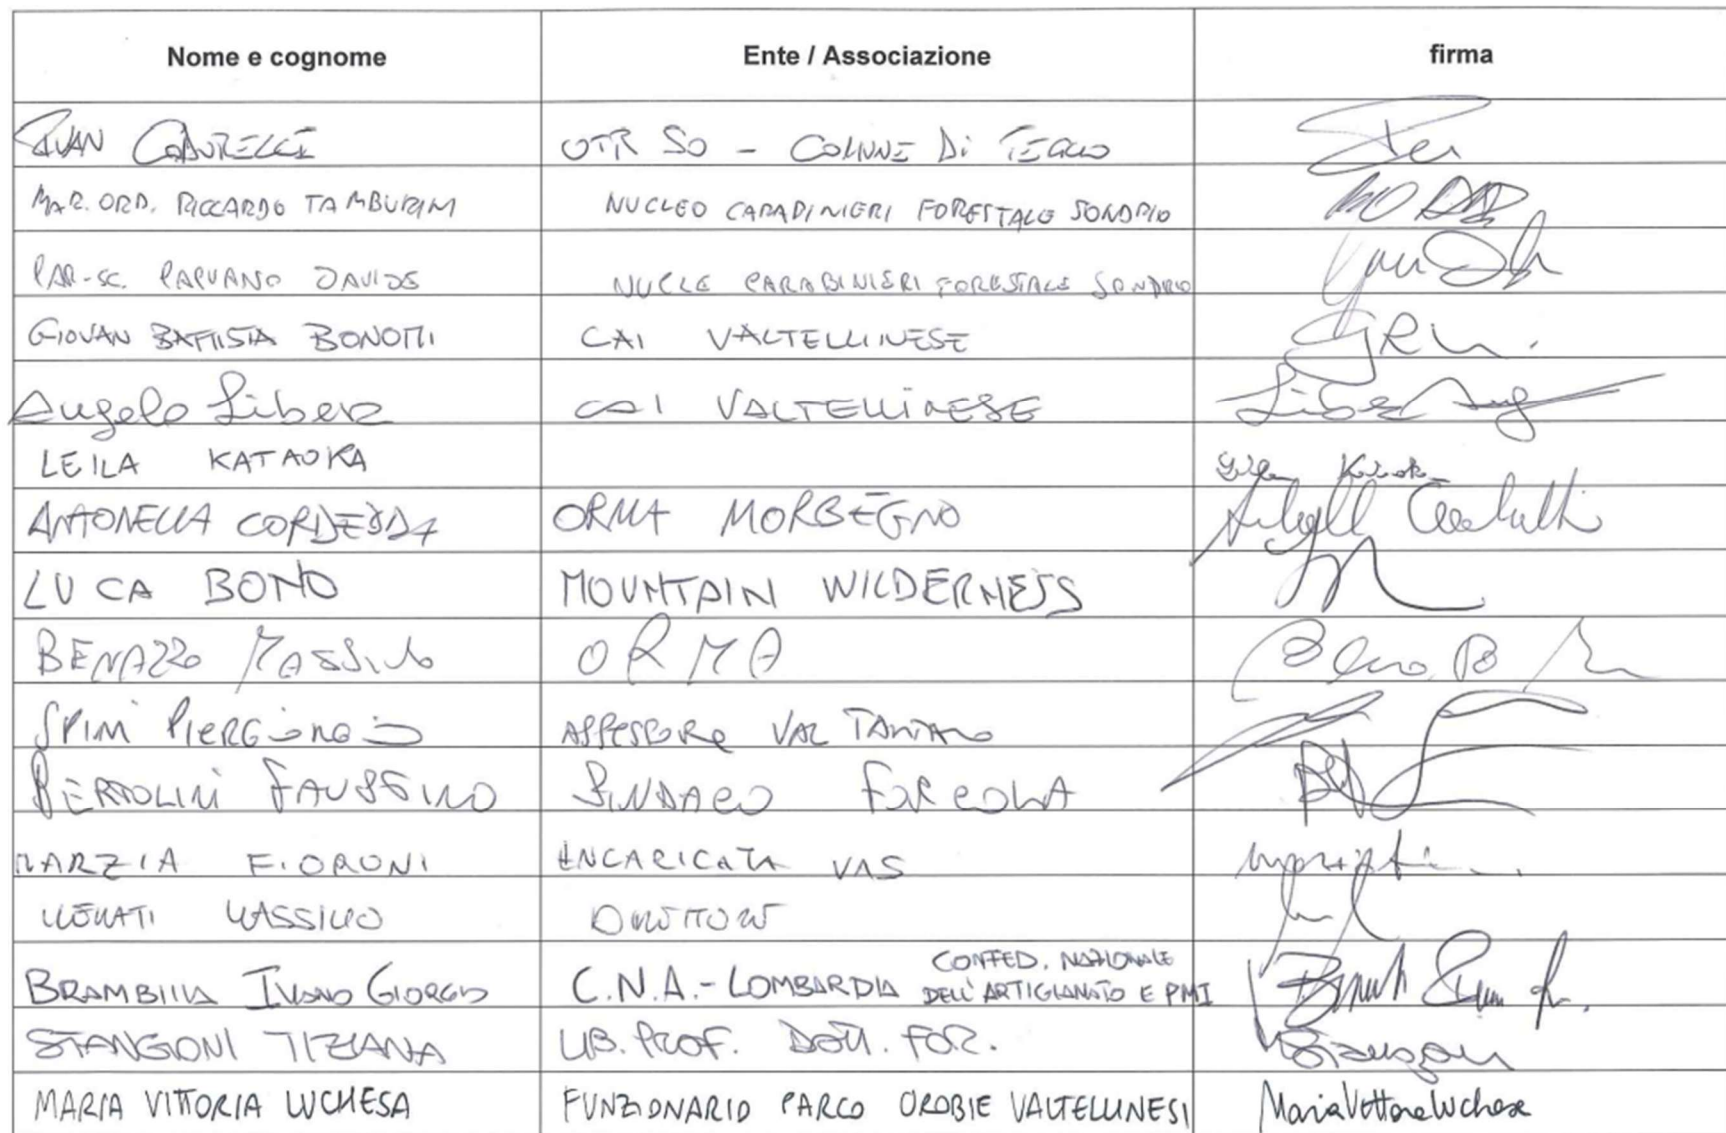 Nome e cognome Ente / Associazione firma
IVAN OTR SO - COMUNE Di TEGLIO
MAR. ORD. RICCARDO TAMBURINI NUCLEO CARABINIERI FORESTALE SONDRIO
DAVIDE NUCLE CARABINIERI FORESTALE SONDRIO
GIOVAN BATTISTA BONOMI CAI VALTELLINESE
Angelo Libera CAI VALTELLINESE
LEILA KATAOKA
ANTONELLA CORDEDDA ORMA MORBEGNO
LUCA BONO MOUNTAIN WILDERNESS
BENAZZO MASSIMO ORMA
SPINI PIERGiorgio ASSESSORE VAL TARTANO
BERTOLINI FAUSTINO SINDACO FORCOLA
MARZIA FIORONI INCARICATA VAS
MASSIMO
CONFED. NAZIONALE
BRAMBILLA IVANO GIORGIO C.N.A. - LOMBARDIA DELL'ARTIGIANATO E PMI
STANGONI TIZIANA LIB. PROF. DOTT. FOR. Stangoni
MARIA VITTORIA LUCHESA FUNZIONARIO PARCO OROBIE VALTELLINESI Maria Vittoria Luchesa